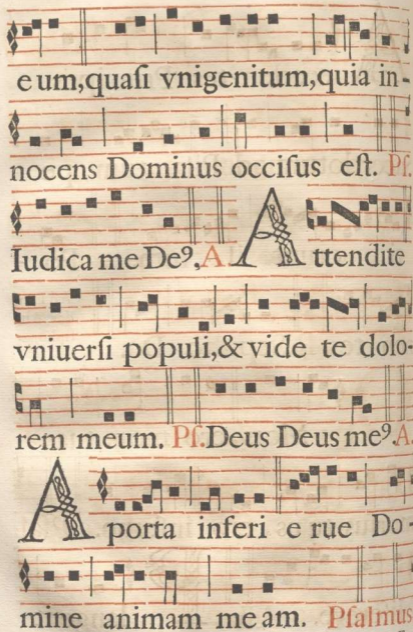 e um,quaſi vnigenitum,quia in-
nocens Dominus occiſus eſt. Pſ.
Iudica me De9. A Attendite
vniuerſi populi,& vide te dolo-
rem meum. Pſ. Deus Deus me9. A.
A porta inferi e rue Do-
mine animam me am. Pſalmus